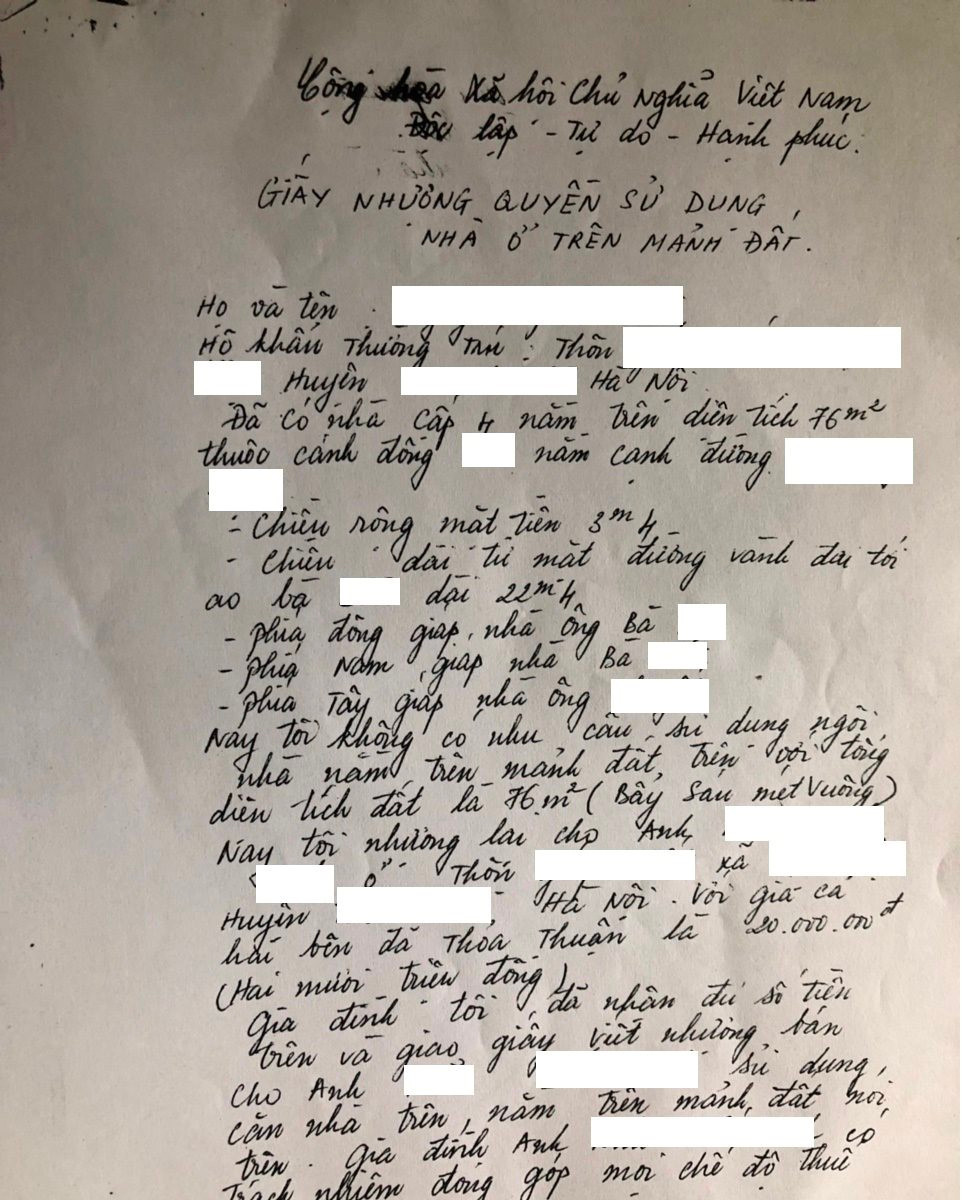 Cộng hoà Xã hôi Chủ Nghĩa Việt Nam
Độc lập - Tự do - Hạnh phúc.
GIẤY NHƯỢNG QUYỀN SỬ DỤNG
NHÀ Ở TRÊN MẢNH ĐẤT.
Họ và tên :
Hộ khẩu Thường Trú : Thôn
Huyện Hà Nội
Đã có nhà cấp 4 nằm trên diện tích 76m²
thuộc cánh đồng nằm cạnh đường
- Chiều rộng mặt tiền 3m4
- Chiều dài từ mặt đường vành đai tới
ao bà dài 22m4
- phía đông giáp nhà ông Bà
- phía Nam giáp nhà Bà
- phía Tây giáp nhà ông
Nay tôi không có nhu cầu sử dụng ngôi
nhà nằm trên mảnh đất trên với tổng
diện tích đất là 76m² (Bẩy Sáu mét Vuông)
Nay tôi nhượng lại cho Anh
ở Thôn xã
Huyện Hà Nội. Với giá cả
hai bên đã Thỏa Thuận là 20.000.000đ
(Hai mươi triệu đồng)
Gia đình tôi đã nhận đủ số tiền
trên và giao giấy viết nhượng bán
cho Anh sử dụng
căn nhà trên, nằm trên mảnh đất nói
trên. Gia đình Anh có
Trách nhiệm đóng góp mọi chế độ thuế